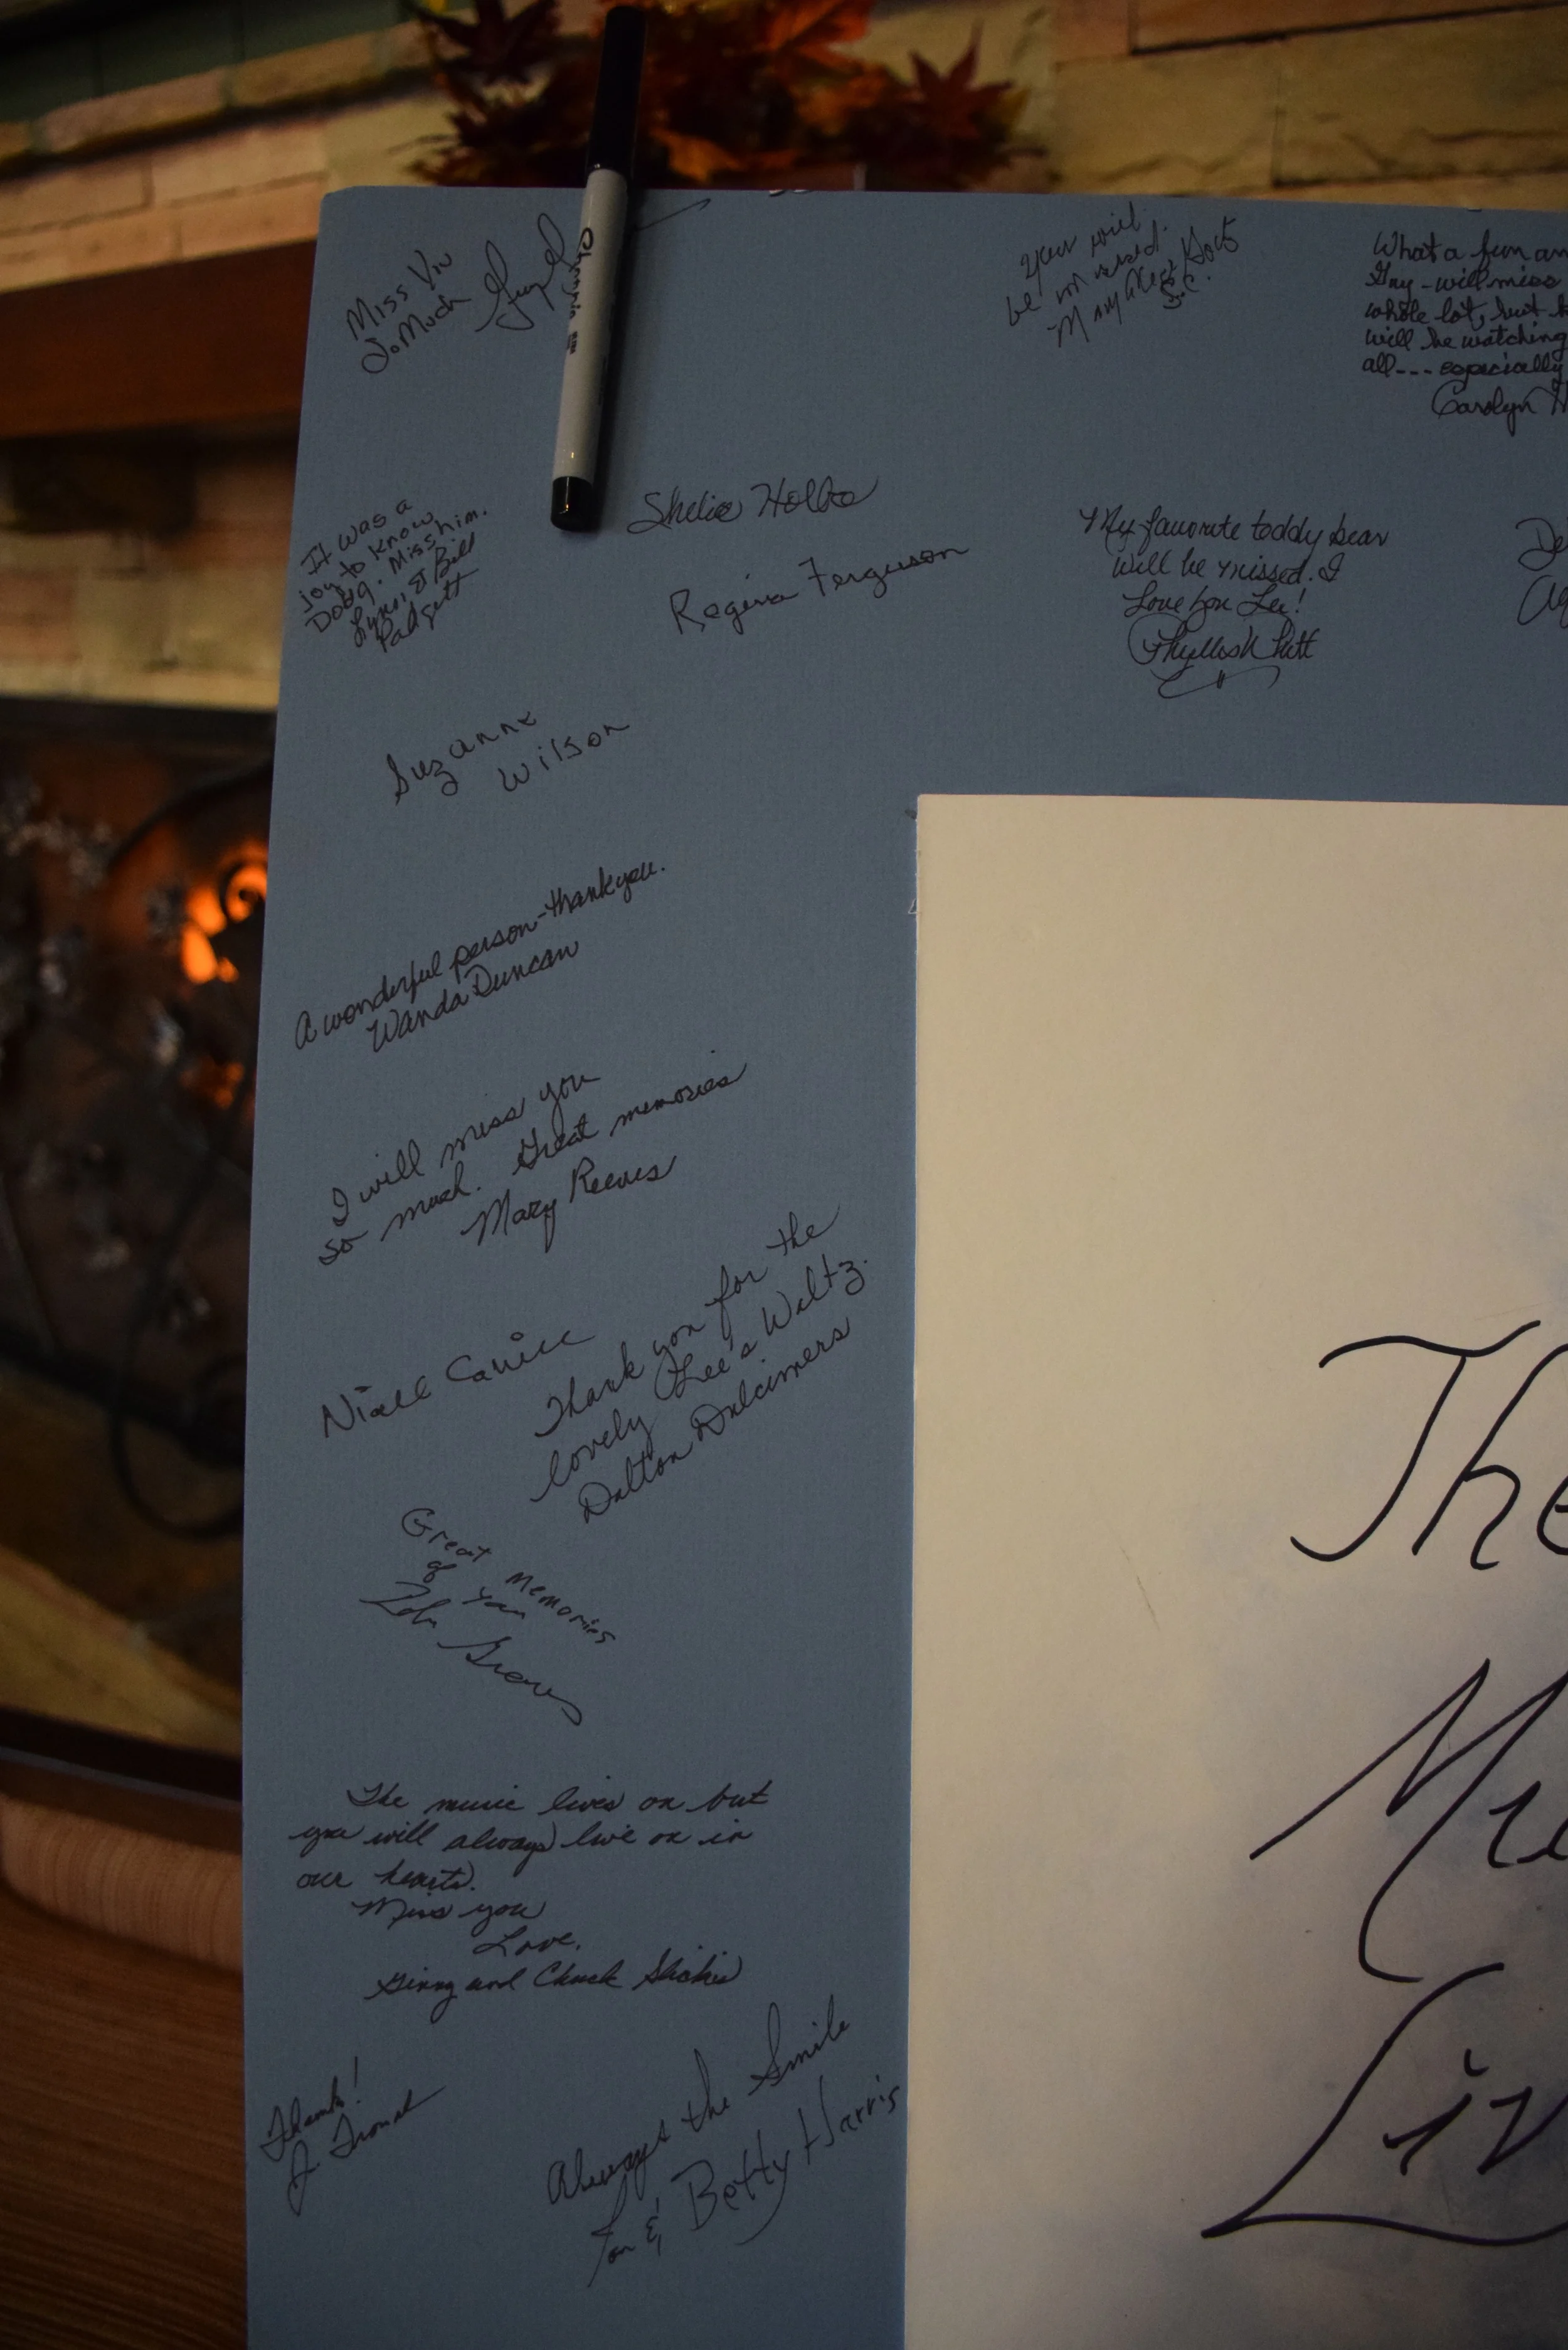 Miss You
So Much
you will
be missed.
What a fun an
Guy - will miss
whole lot, but
will be watching
all--- especially
Carolyn H
It was a
joy to know
Doug. Miss him.
Lynn & Bill
Padgett
Regina Ferguson
My favorite teddy bear
will be missed. I
Love you Lee!
De
Suzanne
Wilson
A wonderful person-thank you.
Wanda Duncan
I will miss you
so much. Great memories
Mary Reeves
Thank you for the
lovely Lee's Waltz.
Dalton Dulcimers
Great memories
of you
The music lives on but
you will always live on in
our hearts.
Miss you
Love,
Ginny and Chuck
Thanks!
Always the Smile
& Betty Harris
The
Mu
Liv